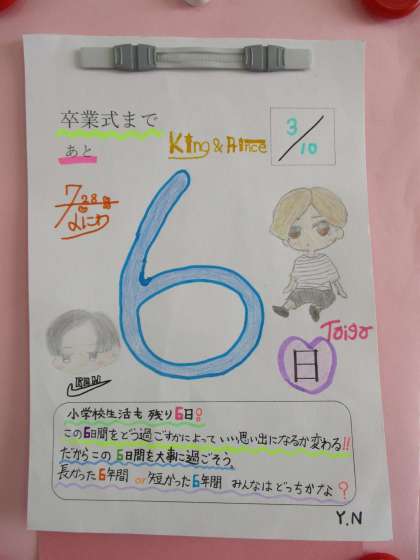 卒業式まで
あと
King & Prince
3/10
7
なにわ
6
日
Taiga
REN
小学校生活も残り6日!
この6日間をどう過ごすかによっていい思い出になるか変わる!!
だからこの6日間を大事に過ごそう。
長かった6年間 or 短かった6年間 みんなはどっちかな?
Y.N